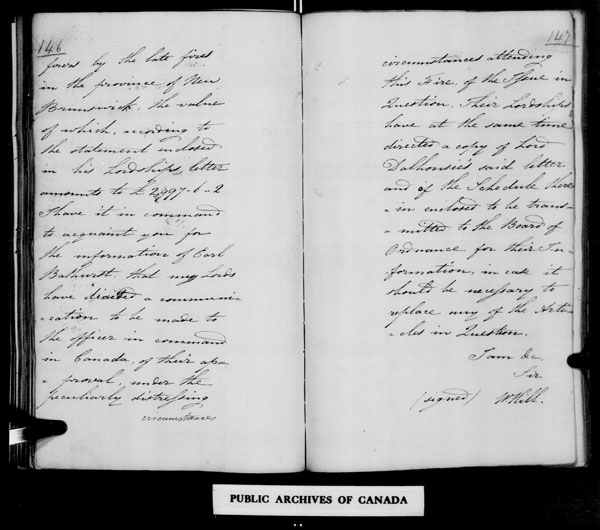 146
ferers by the late fires
in the province of New
Brunswick. the value
of which, according to
the statement inclosed
in his Lordships letter
amounts to £2,997-6-2
I have it in command
to acquaint you for
the information of Earl
Bathurst that my Lords
have directed a communi-
-cation to be made to
the officer in command
in Canada, of their ap-
-proval, under the
peculiarly distressing
circumstances
147
circumstances attending
this Fire, of the Issue in
Question. Their Lordships
have at the same time
directed a copy of Lord
Dalhousie's said letter
and of the Schedule there
-in enclosed to be trans-
-mitted to the Board of
Ordnance for their In-
formation, in case it
should be necessary to
replace any of the Arti-
-cles in Question.
I am &c,
Sir
(signed) W Hill.
PUBLIC ARCHIVES OF CANADA